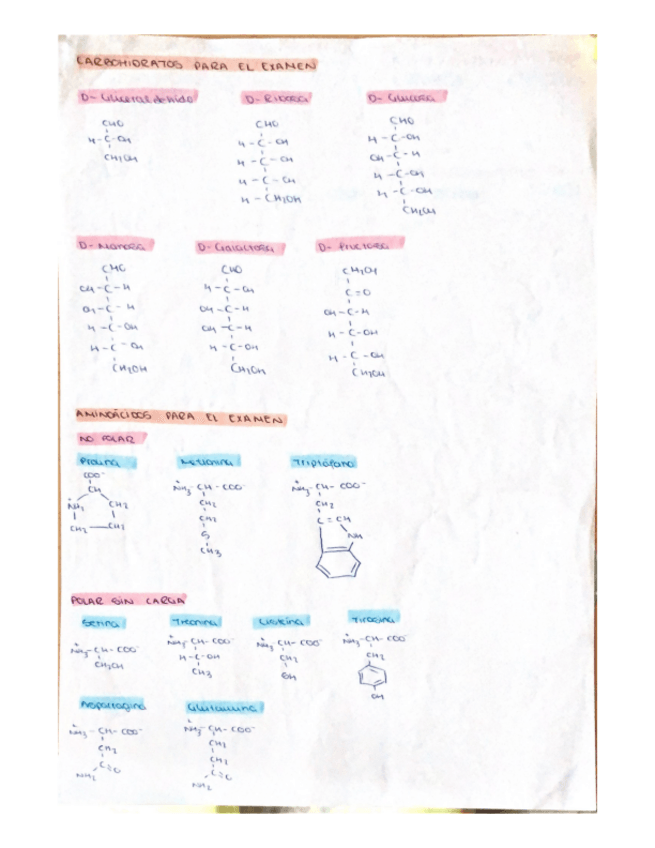 CARBOHIDRATOS PARA EL EXAMEN
D- Gliceraldehido D- Ribosa D- Glucosa
CHO CHO CHO
H-C-OH H-C-OH H-C-OH
CH2OH H-C-OH OH-C-H
H-C-OH H-C-OH
H-CH2OH H-C-OH
CH2OH
D- Manosa D- Galactosa D- Fructosa
CHO CHO CH2OH
OH-C-H H-C-OH C=O
OH-C-H OH-C-H OH-C-H
H-C-OH OH-C-H H-C-OH
H-C-OH H-C-OH H-C-OH
CH2OH CH2OH CH2OH
AMINOÁCIDOS PARA EL EXAMEN
NO POLAR
Prolina Metionina Triptófano
COO⁻ NH3-CH-COO⁻ NH3-CH-COO⁻
CH CH2 CH2
NH2 CH2 CH2 C=CH
CH2 CH2 S NH
CH3
POLAR SIN CARGA
Serina Treonina Cisteína Tirosina
NH3-CH-COO⁻ NH3-CH-COO⁻ NH3-CH-COO⁻ NH3-CH-COO⁻
CH2OH H-C-OH CH2 CH2
CH3 OH
Asparragina Glutamina
NH3-CH-COO⁻ NH3-CH-COO⁻
CH2 CH2
C=O CH2
NH2 C=O
NH2